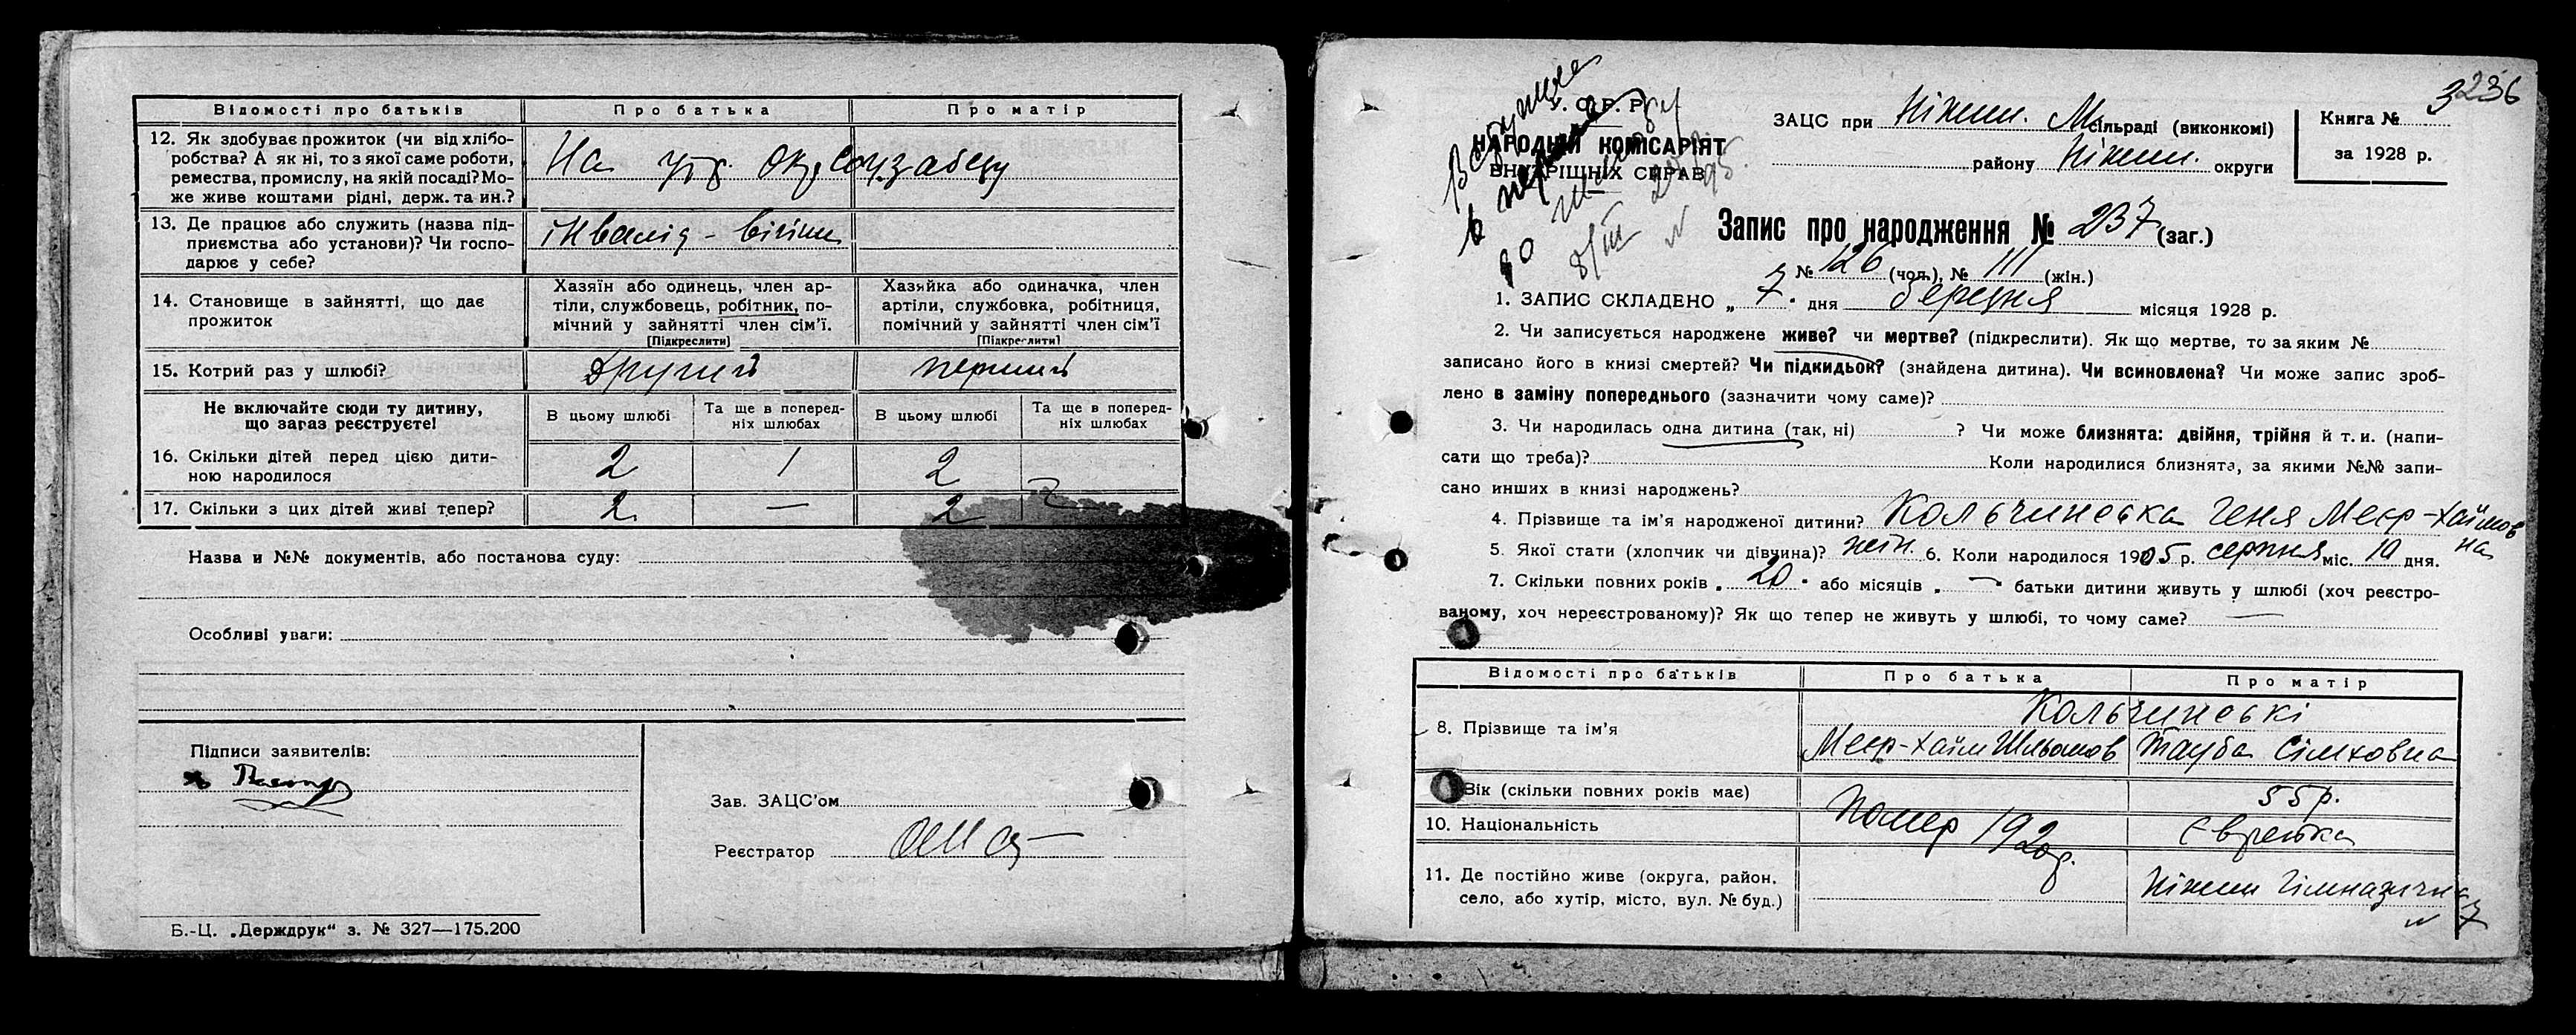 Відомості про батьків Про батька Про матір
12. Як здобуває прожиток (чи від хлібо-
робства? А як ні, то з якої саме роботи,
ремества, промислу, на якій посаді? Мо-
же живе коштами рідні, держ. та ин.?
На утр.
13. Де працює або служить (назва під-
приємства або установи)? Чи госпо-
дарює у себе?
інвалід -
14. Становище в зайнятті, що дає
прожиток
Хазяїн або одинець, член ар-
тіли, службовець, робітник, по-
мічний у зайнятті член сім'ї.
[Підкреслити]
Хазяйка або одиначка, член
артіли, службовка, робітниця,
помічний у зайнятті член сім'ї
[Підкреслити]
15. Котрий раз у шлюбі? другий перший
Не включайте сюди ту дитину,
що зараз реєструєте!
В цьому шлюбі
Та ще в поперед-
ніх шлюбах
В цьому шлюбі
Та ще в поперед-
ніх шлюбах
16. Скільки дітей перед цією дити-
ною народилося
2 1 2
17. Скільки з цих дітей живі тепер? 2 — 2
Назва и №№ документів, або постанова суду:
Особливі уваги:
Підписи заявителів:
Зав. ЗАЦС'ом
Реєстратор
Б.-Ц. „Держдрук“ з. № 327—175.200
3236
У. С. Р. Р.
НАРОДНІЙ КОМІСАРІЯТ
ВНУТРІШНІХ СПРАВ
8/III
ЗАЦС при Ніжин. М. сільраді (виконкомі)
району Ніжин. округи
Книга №
за 1928 р.
Запис про народження № 237 (заг.)
№ 126 (чол.), № 111 (жін.)
1. ЗАПИС СКЛАДЕНО „ 7 " дня березня місяця 1928 р.
2. Чи записується народжене живе? чи мертве? (підкреслити). Як що мертве, то за яким №
записано його в книзі смертей? Чи підкидьок? (знайдена дитина). Чи всиновлена? Чи може запис зроб-
лено в заміну попереднього (зазначити чому саме)?
3. Чи народилась одна дитина (так, ні) ? Чи може близнята: двійня, трійня й т. и. (напи-
сати що треба)? Коли народилися близнята, за якими №№ запи-
сано инших в книзі народжень?
4. Прізвище та ім'я народженої дитини? Кольчинська Геня Меєр-Хаймов
на
5. Якої стати (хлопчик чи дівчина)? жін. 6. Коли народилося 1905 р. серпня міс. 10 дня.
7. Скільки повних років „ 20 " або місяців „ — " батьки дитини живуть у шлюбі (хоч реєстро-
ваному, хоч нереєстрованому)? Як що тепер не живуть у шлюбі, то чому саме? —
Відомості про батьків Про батька Про матір
Кольчинські
8. Прізвище та ім'я Меєр-Хайм Шльомов Тауба Сімховна
Вік (скільки повних років має) 55 р.
Помер 192
10. Національність Єврейка
11. Де постійно живе (округа, район,
село, або хутір, місто, вул. № буд.)
Ніжин Гімназична
№ 7